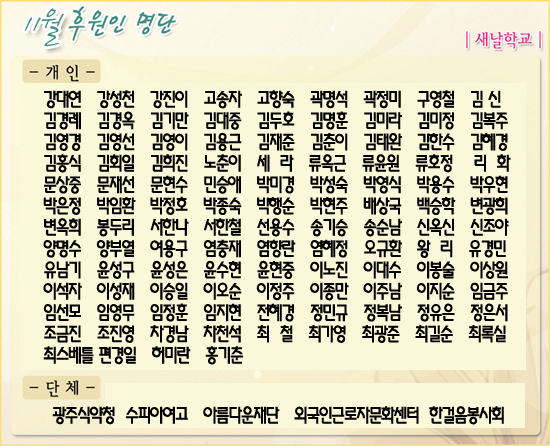 11월 후원인 명단
| 새날학교 |
- 개 인 -
강대연 강성천 강진이 고송자 고향숙 곽명석 곽정미 구영철 김 신
김경례 김경옥 김기만 김대중 김두호 김명훈 김미라 김미정 김복주
김영경 김영선 김영이 김용근 김재준 김춘이 김태완 김한수 김혜경
김홍식 김회일 김희진 노춘이 세 라 류옥근 류윤원 류호정 리 화
문상중 문재선 문현수 민승애 박미경 박성숙 박영식 박용수 박우현
박은정 박임환 박정호 박종숙 박행순 박현주 배상국 백승학 변광희
변옥희 봉두리 서한나 서한철 선용수 송기승 송순남 신옥신 신조야
양명수 양부열 여용구 염충재 염항란 염혜정 오규환 왕 리 유경민
유남기 윤성구 윤성은 윤수현 윤현중 이노진 이대수 이봉술 이상원
이석자 이성재 이승일 이오순 이정주 이종만 이주남 이지순 임금주
임선모 임영무 임정훈 임지현 전혜경 정민규 정복남 정유은 정은서
조금진 조진영 차경남 차천석 최 철 최가영 최광준 최길순 최록실
최스베틀 편경일 허미란 홍기춘
- 단 체 -
광주식약청 수피아여고 아름다운재단 외국인근로자문화센터 한걸음봉사회